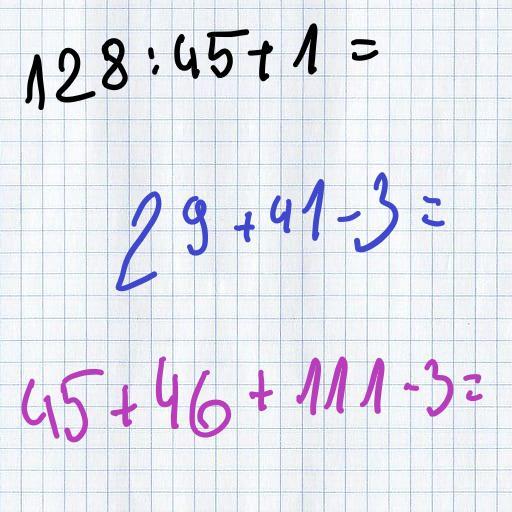 128:45+1=
29+41-3=
45+46+111-3=